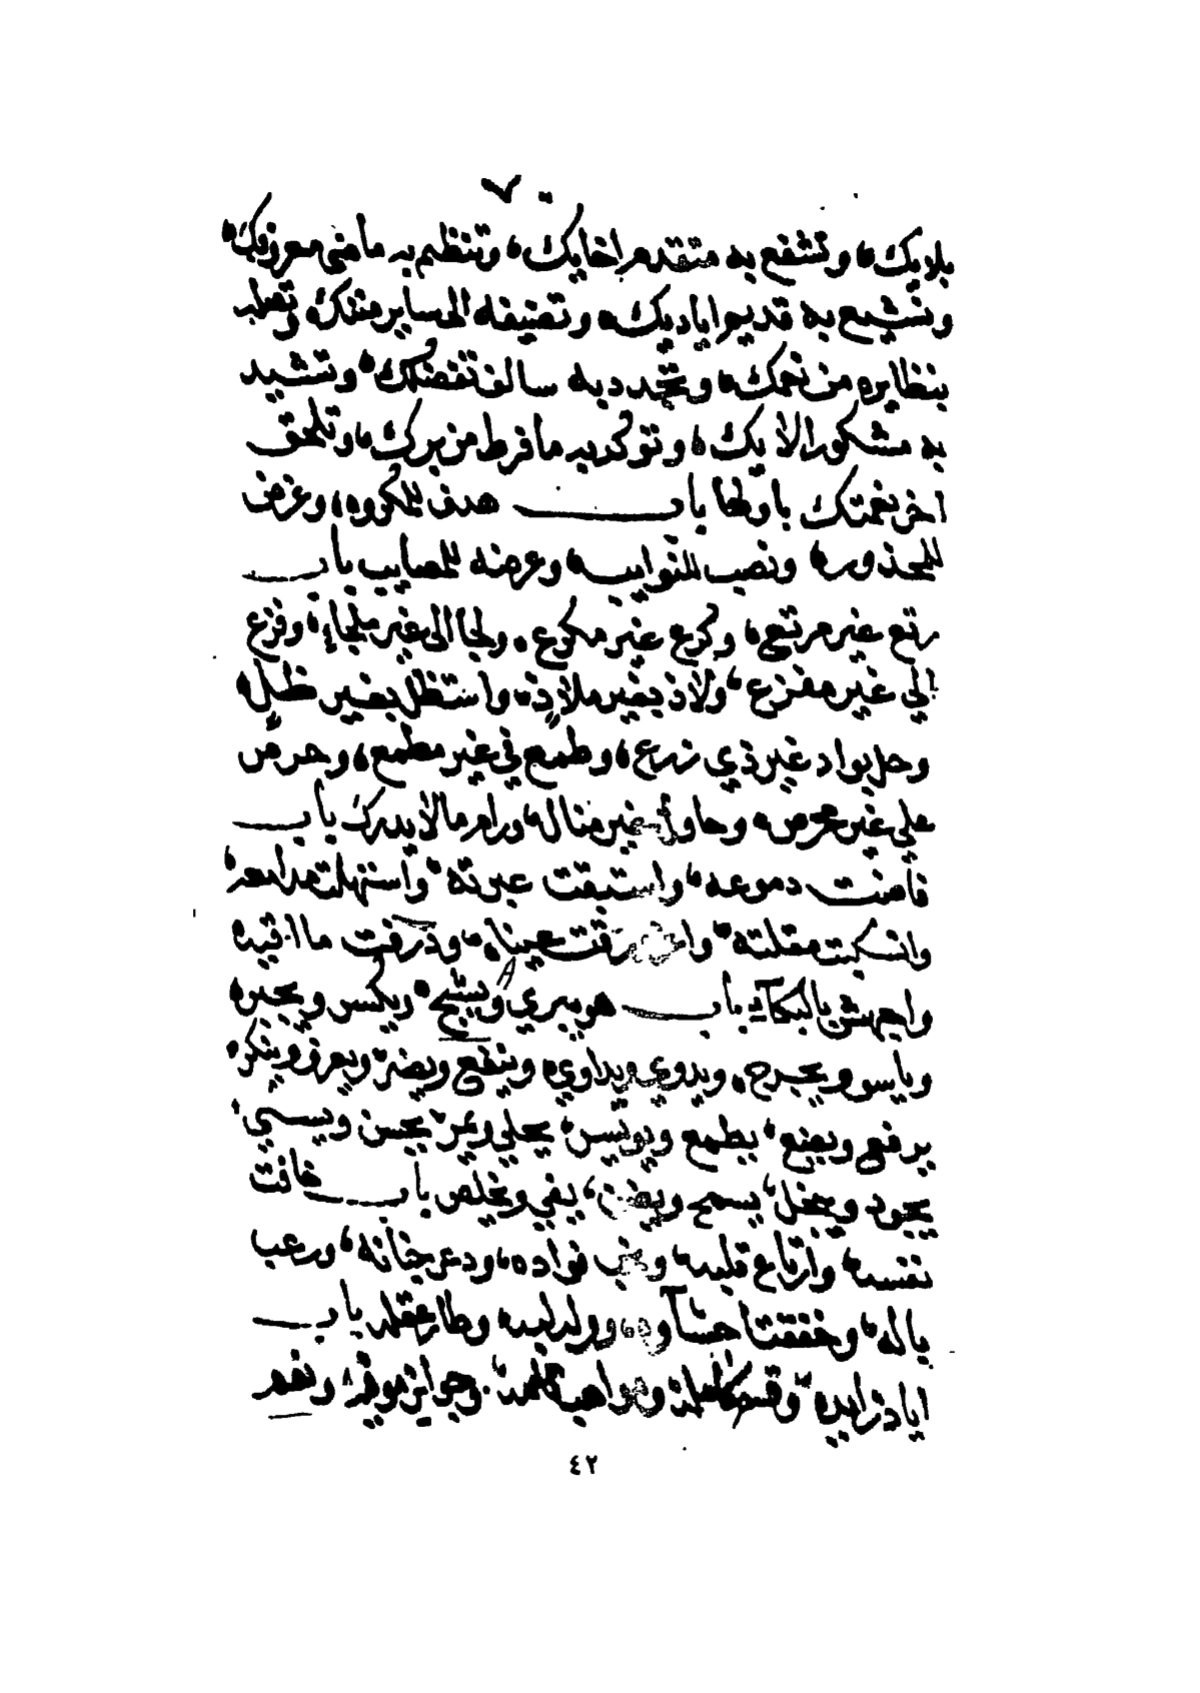 ٧
بلايك، وتشفع به متقدم اخايك، وتنظم به ما مضى معروفك،
وتشيع به قديم اياديك، وتضيفه الى ساير مننك، وتصله
بنظايره من نعمك، وتجدد به سالف تفضلك، وتشيد
به مشكور الايك، وتوكد به ما فرط من برك، وتلحق
اخر نعمتك باولها باب هدف للمكروه، وغرض
للمحذوره ونصب للنوايب، وعرضه للمصايب باب
رتع غير مرتع، وكرع غير مكرع، ولجا الى غير ملجاء، وفزع
الي غير مفزع، ولاذ بغير ملاذ، واستظل بغير ظل،
وحل بواد غير ذي زرع، وطمع في غير مطمع، وحرص
علي غير محرص، وحاول غير مناله، ورام مالا يدرك باب
فاضت دموعه، واستبقت عبرته، واستهلت مدامعه،
وانسكبت مقلته، واغرورقت عيناه، وذرفت ماآقيه
واجهش بالبكآء باب هو يبري ويشج، ويكسر ويجبر،
وياسو ويجرح، ويدوي ويداوي، وينفع ويضر، ويعرف وينكر،
يرفع ويضع، يطمع ويوئيس، يحلي ويمر، يحسن ويسيء،
يجود ويبخل، يسمح ويضن، يفي ويخلص باب خافت
نفسه، وارتاع قلبه، فواده، وذعر جنانه، ورعب
باله، وخفقت احشآوه، ووله لبه، وطار عقله باب
اياد زايده، وقسم كامله، ومواهب، وجوايز موفره، ونعم
٤٢